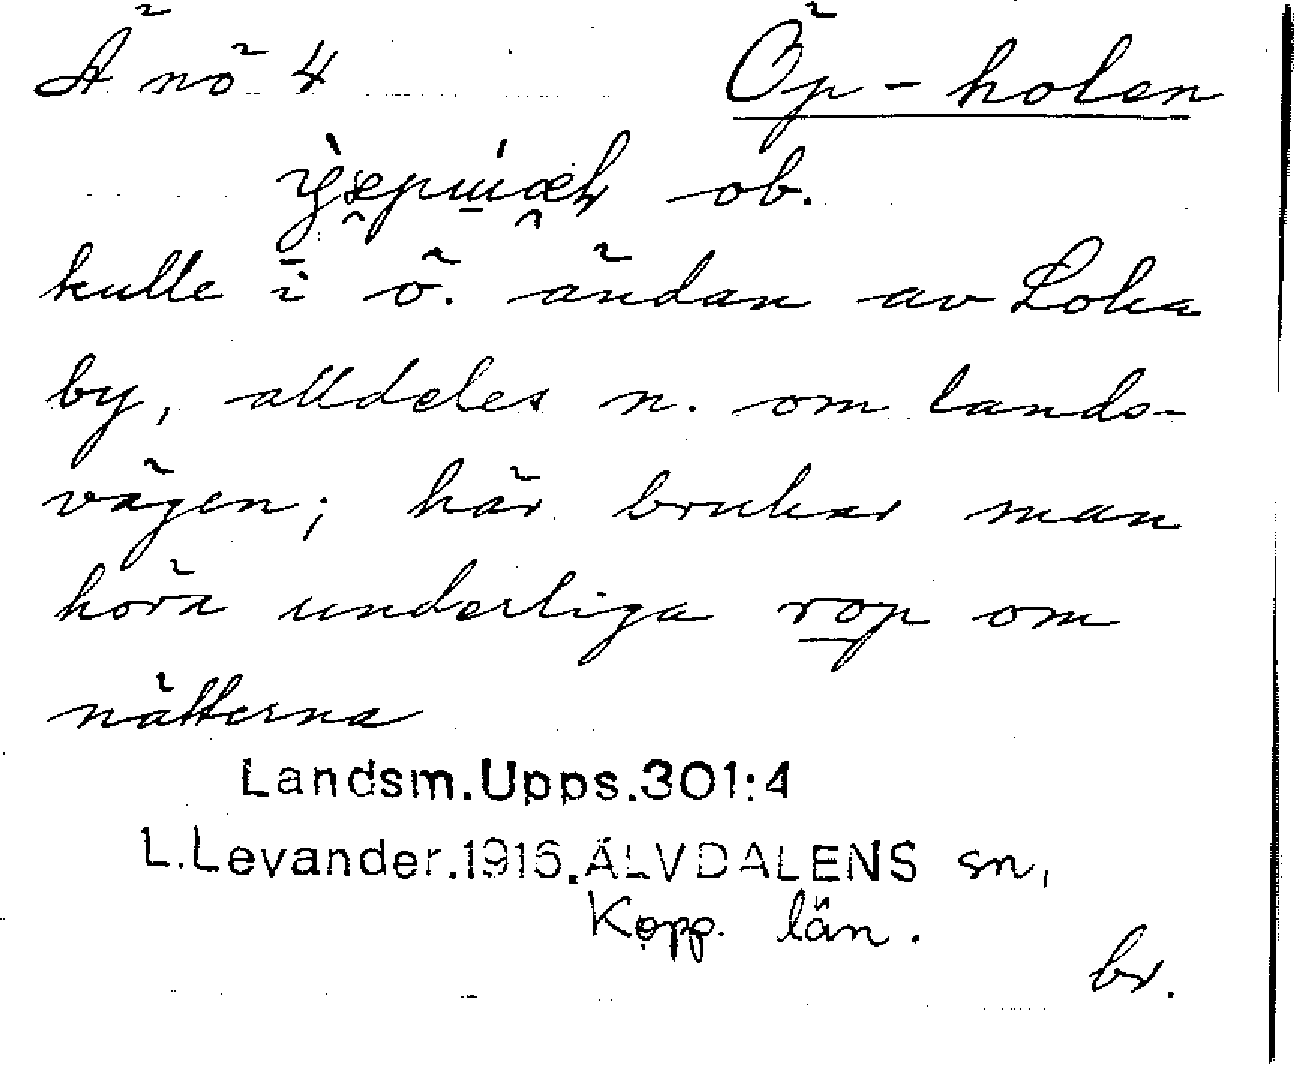 Ä nö 4 Öp-holen
ob.
kulle i ö. ändan av Loka
by, alldeles n. om lands-
vägen; här brukar man
höra underliga rop om
nätterna
Landsm.Upps.301:4
L.Levander.1915.ÄLVDALENS sn,
Kopp. län.
br.